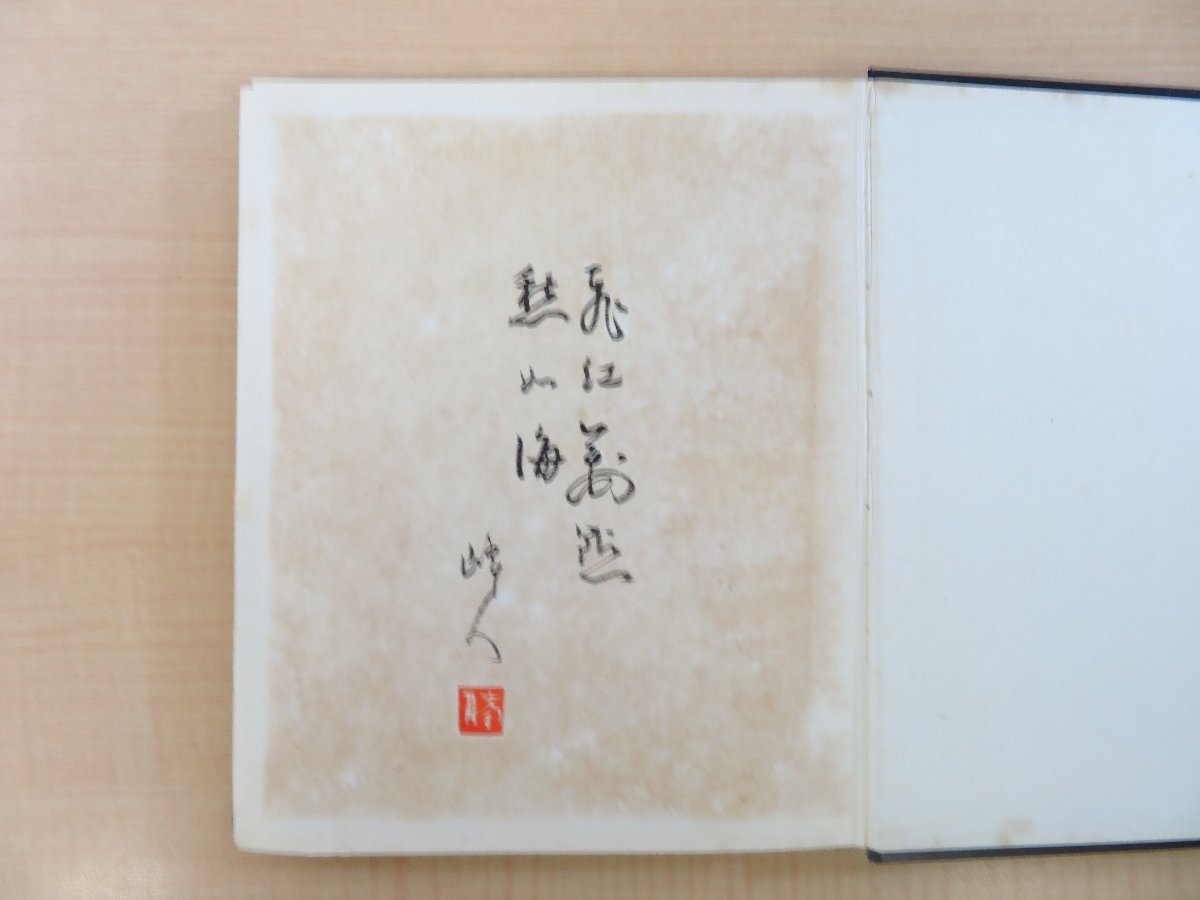 飛紅萬點
愁如海
峰人